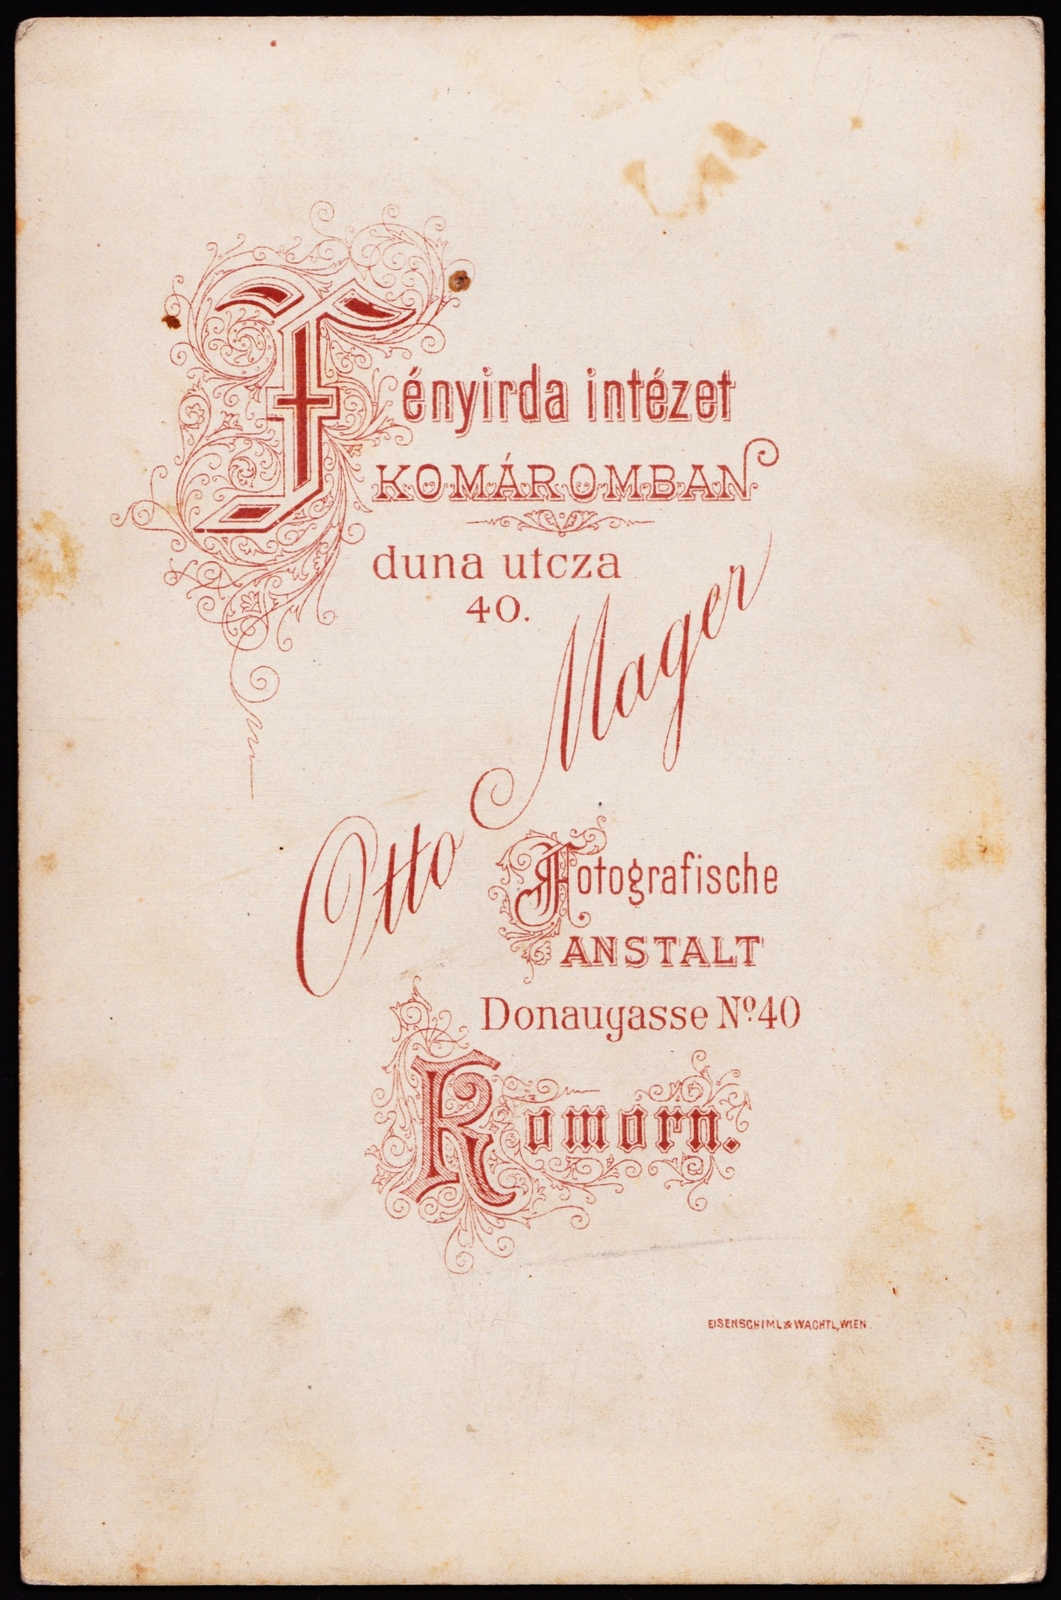 Fényirda intézet
KOMÁROMBAN
duna utcza
40.
Otto Mager
Fotografische
ANSTALT
Donaugasse Nº 40
Komorn.
EISENSCHIML & WACHTL, WIEN.